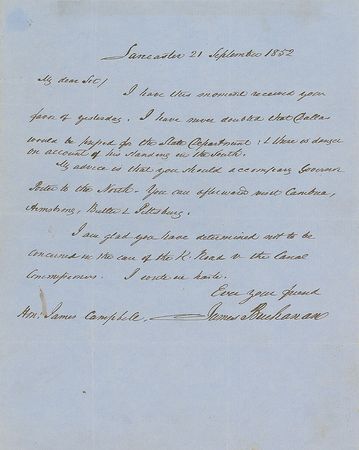 Lancaster 21 September 1852
My dear Sir/
I have this moment received your
favor of yesterday. I have never doubted that Dallas
would be pressed for the State Department; & there is danger
on account of his standing in the South.
My advice is that you should accompany Governor
to the North. You can afterwards meet Cambria,
Armstrong, Butler & Pittsburg.
I am glad you have determined not to be
concerned in the case of the R. Road v the Canal
Commissioners. I write in haste.
Ever your friend
Hon: James Campbell. James Buchanan